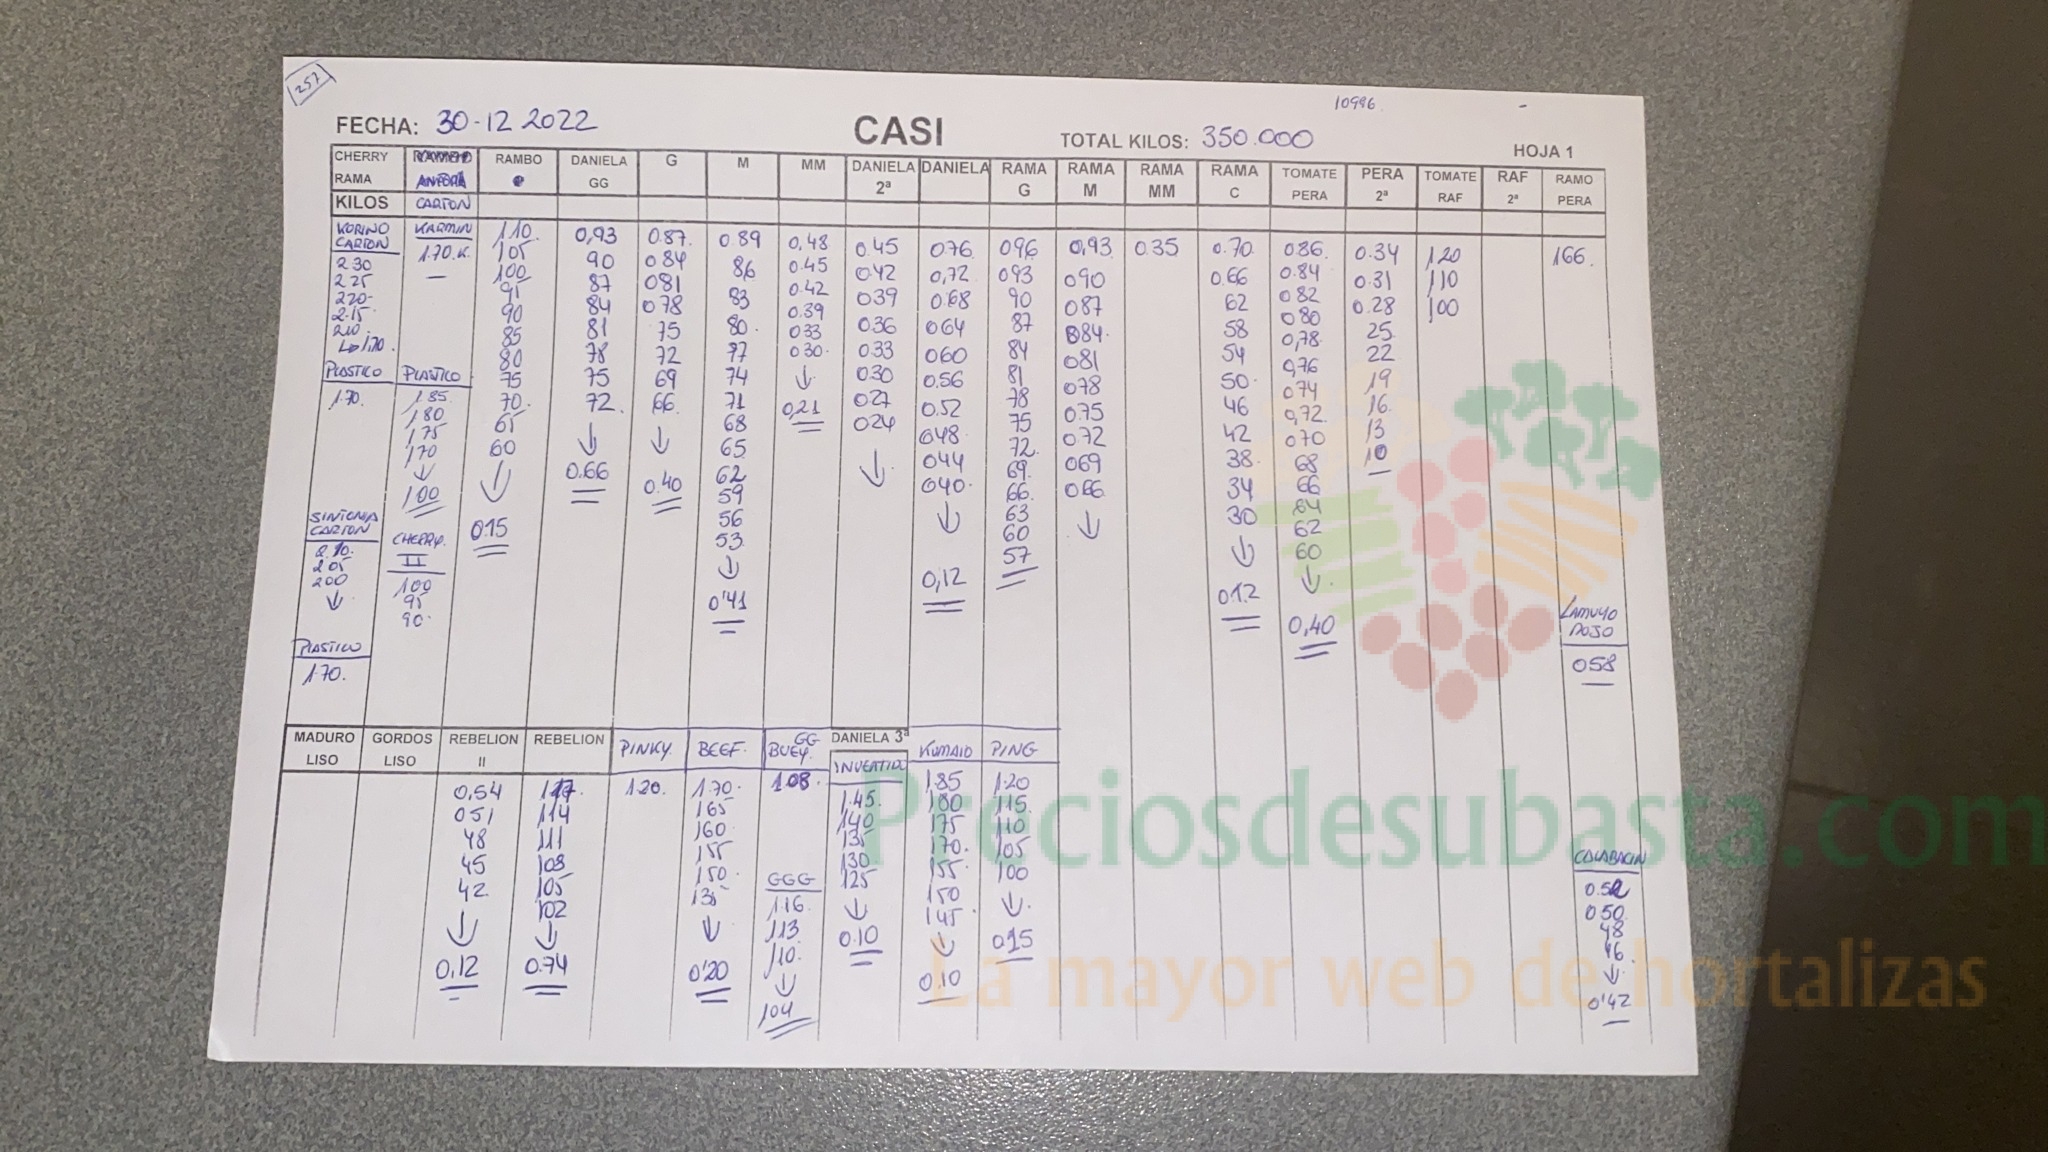 257
10996.
FECHA: 30-12 2022
CASI
TOTAL KILOS: 350.000
HOJA 1
CHERRY RAMA
ANFORA
RAMBO
DANIELA GG
G
M
MM
DANIELA 2ª
DANIELA
RAMA G
RAMA M
RAMA MM
RAMA C
TOMATE PERA
PERA 2ª
TOMATE RAF
RAF 2ª
RAMO PERA
KILOS
CARTON
KORINO
CARTON
230
225
220-
2.15
210.
↳ 1,70.
PLASTICO
1.70.
SINTONIA
CARTON
2.10.
205
200
↓
PLASTICO
1.70.
KARMIN
1.70.K.
—
PLASTICO
1.85.
180
175
170
↓
100
CHERRY.
II
100
95
90.
110.
105
100
95
90
85
80
75
70.
65
60
↓
0.15
0,93
90
87
84
81
78
75
72.
↓
0.66
0.87.
084
081
078
75
72
69
66.
↓
0.40
0.89
86
83
80.
77
74
71
68
65
62
59
56
53
↓
0'41
0,48
0.45
0.42
0.39
033
030.
↓
0,21
0.45
0.42
039
0.36
0.33
030
027
024
↓
0.76.
0,72
0.68
064
060
0.56
0.52
048.
044
040.
↓
0,12
096
093
90
87
84
81
78
75
72.
69.
66.
63
60
57
0,93
090
087
084.
081
078
0.75
0.72
069
066
↓
0.35
0.70.
0.66
62
58
54
50.
46
42
38.
34
30
↓
012
0.86.
0.84
082
080
0,78.
0,76
074
0,72
070
68
66
64
62
60
↓
0,40
0.34
0.31
0.28
25
22
19
16.
13
10
120
110
100
166.
LAMUYO
ROJO
058
MADURO LISO
GORDOS LISO
REBELION II
REBELION
PINKY.
BEEF.
GG
BUEY.
DANIELA 3ª
INVERTID
KUMAIO
PING
0,54
051
48
45
42
↓
0,12
117.
114
111
108
105
102
↓
0.74
120.
1.70.
165
160.
155
150.
135
↓
0'20
1.08.
GGG
1.16.
113
110.
↓
104
1.45.
140
135
130
125
↓
0.10
1.85
180
175
170.
155.
150
145.
↓
0.10
1.20
115.
110
105
100
↓
0.15
CALABACIN
0.52
050
48
46
↓
0'42
Preciosdesubasta.com
La mayor web de hortalizas